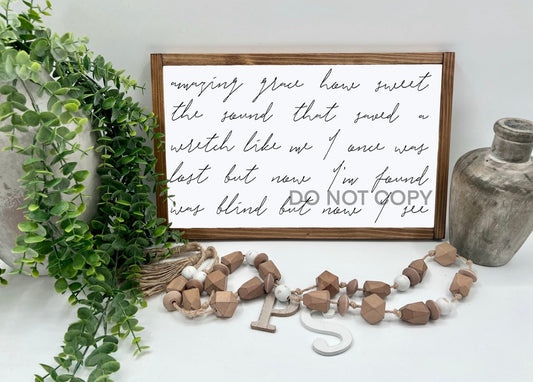 amazing grace how sweet
the sound that saved a
wretch like me I once was
lost but now I'm found
DO NOT COPY
was blind but now I see
P S